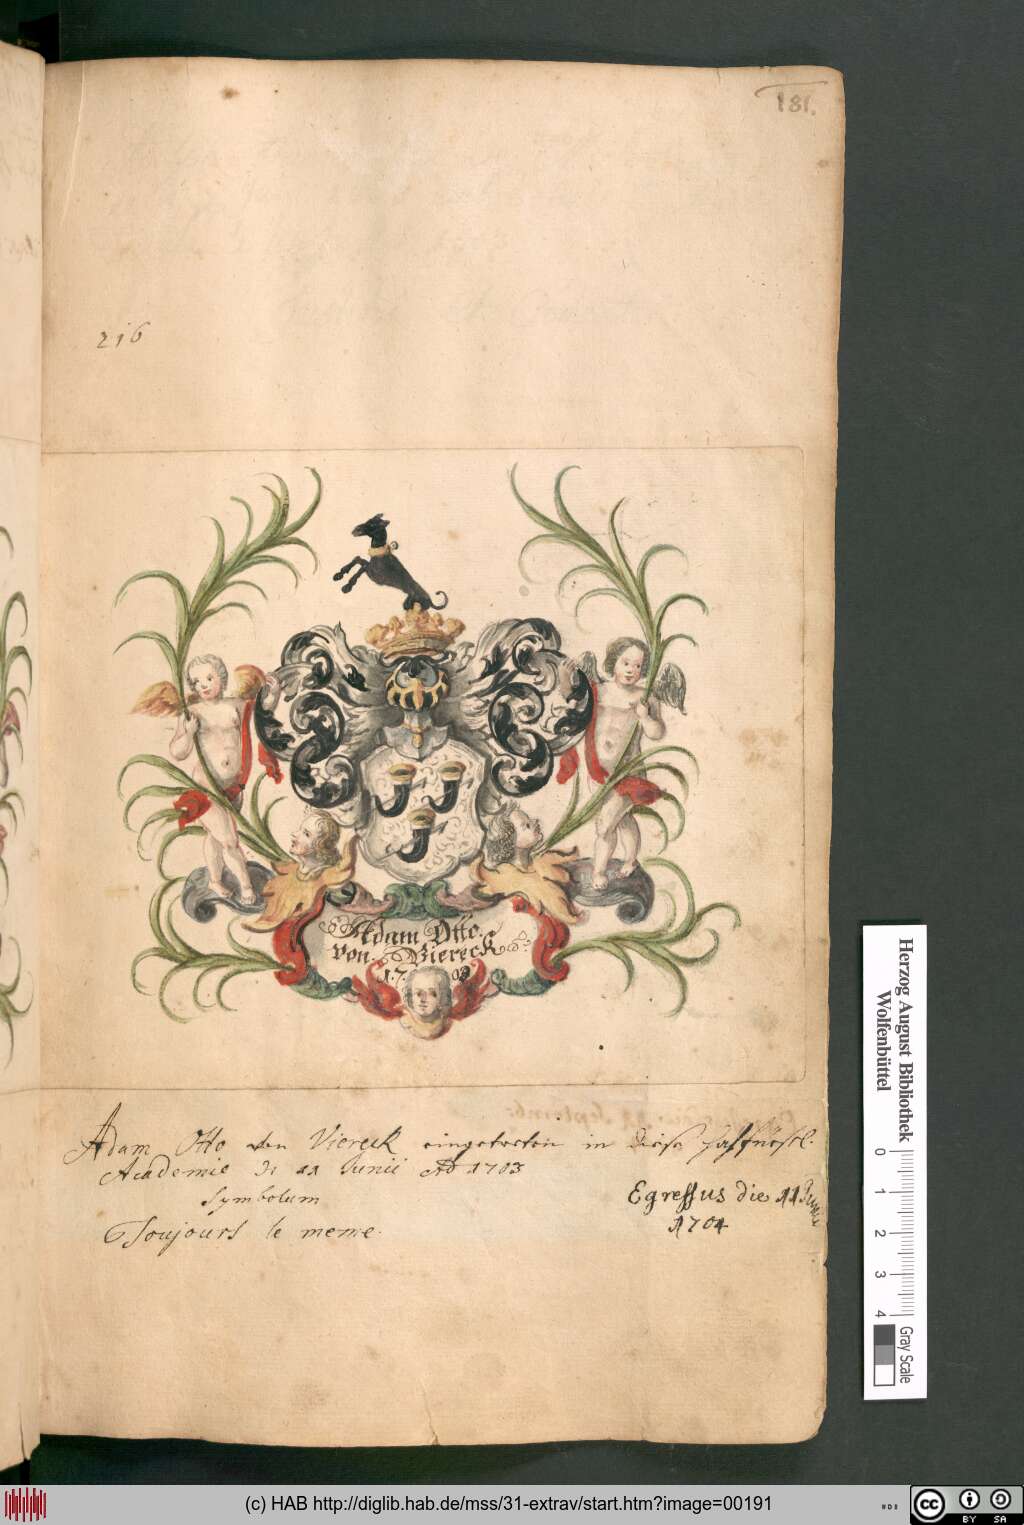 181.
216
Adam Otto.
von. Viereck
17 03
Adam Otto von Viereck eingetreten in diese hochfürstl.
Academie d. 11 Junii Ao 1703
Symbolum
Toujours le meme.
Egressus die 11 Junii
1704
Herzog August Bibliothek
Wolfenbüttel
0 1 2 3 4
Gray Scale
(c) HAB http://diglib.hab.de/mss/31-extrav/start.htm?image=00191
cc BY SA